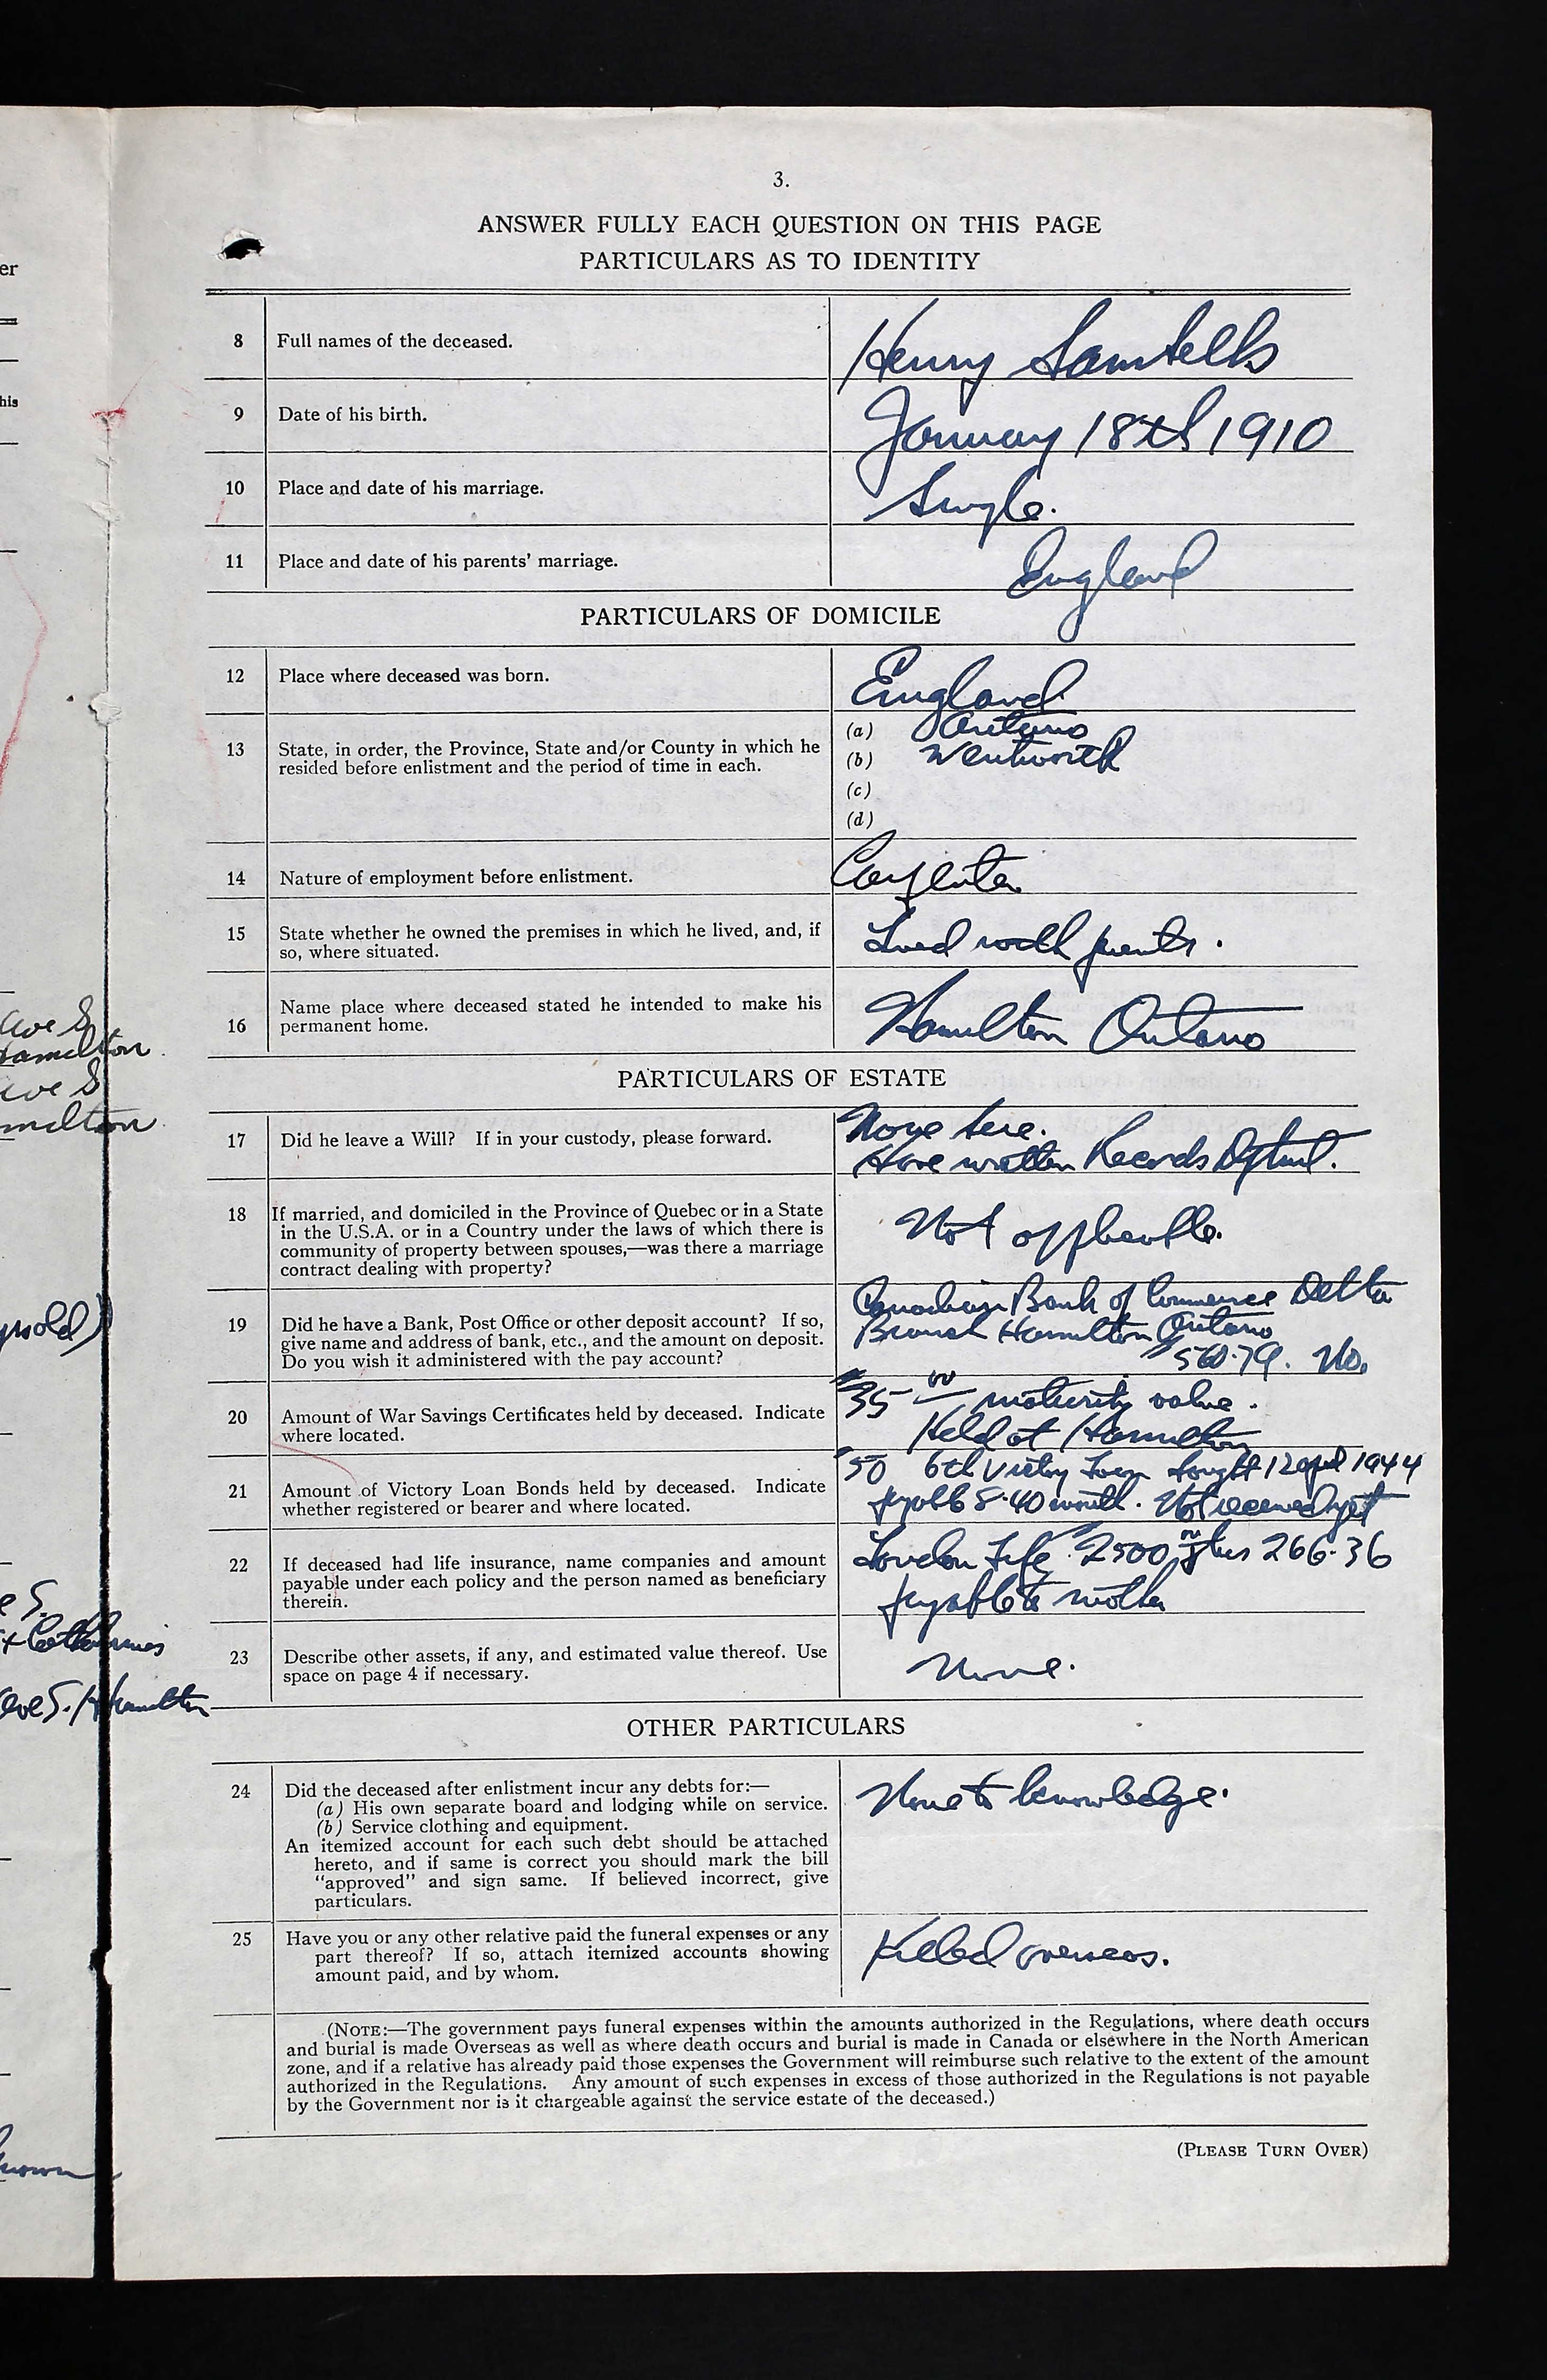 3.
ANSWER FULLY EACH QUESTION ON THIS PAGE
PARTICULARS AS TO IDENTITY
8 Full names of the deceased. Henry
9 Date of his birth. January 18th 1910
10 Place and date of his marriage. Single.
11 Place and date of his parents' marriage. England
PARTICULARS OF DOMICILE
12 Place where deceased was born. England
13 State, in order, the Province, State and/or County in which he
resided before enlistment and the period of time in each.
(a) Ontario
(b) Wentworth
(c)
(d)
14 Nature of employment before enlistment. Carpenter
15 State whether he owned the premises in which he lived, and, if
so, where situated.
Lived with parents.
16 Name place where deceased stated he intended to make his
permanent home.
Hamilton Ontario
PARTICULARS OF ESTATE
17 Did he leave a Will? If in your custody, please forward.
None here.
Have written Records Deptment.
18 If married, and domiciled in the Province of Quebec or in a State
in the U.S.A. or in a Country under the laws of which there is
community of property between spouses,—was there a marriage
contract dealing with property?
Not applicable.
19 Did he have a Bank, Post Office or other deposit account? If so,
give name and address of bank, etc., and the amount on deposit.
Do you wish it administered with the pay account?
Canadian Bank of Commerce Delta
Branch Hamilton Ontario
$560.79. No.
20 Amount of War Savings Certificates held by deceased. Indicate
where located.
$35 00 maturity value.
Held at Hamilton
21 Amount of Victory Loan Bonds held by deceased. Indicate
whether registered or bearer and where located.
$50 6th Victory Loan bought 12 april 1944
payable 8.40 month. Not received yet
22 If deceased had life insurance, name companies and amount
payable under each policy and the person named as beneficiary
therein.
London Life $2500 00 plus 266.36
payable to mother
23 Describe other assets, if any, and estimated value thereof. Use
space on page 4 if necessary.
None.
OTHER PARTICULARS
24 Did the deceased after enlistment incur any debts for:—
(a) His own separate board and lodging while on service.
(b) Service clothing and equipment.
An itemized account for each such debt should be attached
hereto, and if same is correct you should mark the bill
"approved" and sign same. If believed incorrect, give
particulars.
None to knowledge.
25 Have you or any other relative paid the funeral expenses or any
part thereof? If so, attach itemized accounts showing
amount paid, and by whom.
Killed overseas.
(NOTE:—The government pays funeral expenses within the amounts authorized in the Regulations, where death occurs
and burial is made Overseas as well as where death occurs and burial is made in Canada or elsewhere in the North American
zone, and if a relative has already paid those expenses the Government will reimburse such relative to the extent of the amount
authorized in the Regulations. Any amount of such expenses in excess of those authorized in the Regulations is not payable
by the Government nor is it chargeable against the service estate of the deceased.)
(PLEASE TURN OVER)